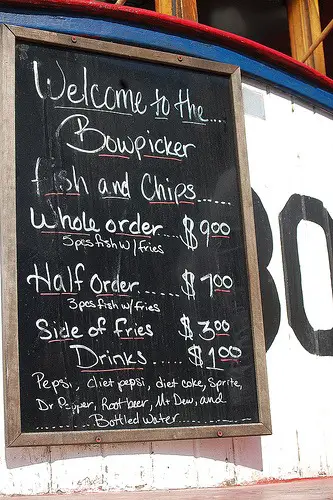 Welcome to the....
Bowpicker
fish and Chips.....
Whole order....$9.00
5pcs fish w/fries
Half Order.....$7.00
3pcs fish w/fries
Side of fries $3.00
Drinks....$1.00
Pepsi, diet pepsi, diet coke, Sprite,
Dr Pepper, Root beer, Mt Dew, and
Bottled Water
30